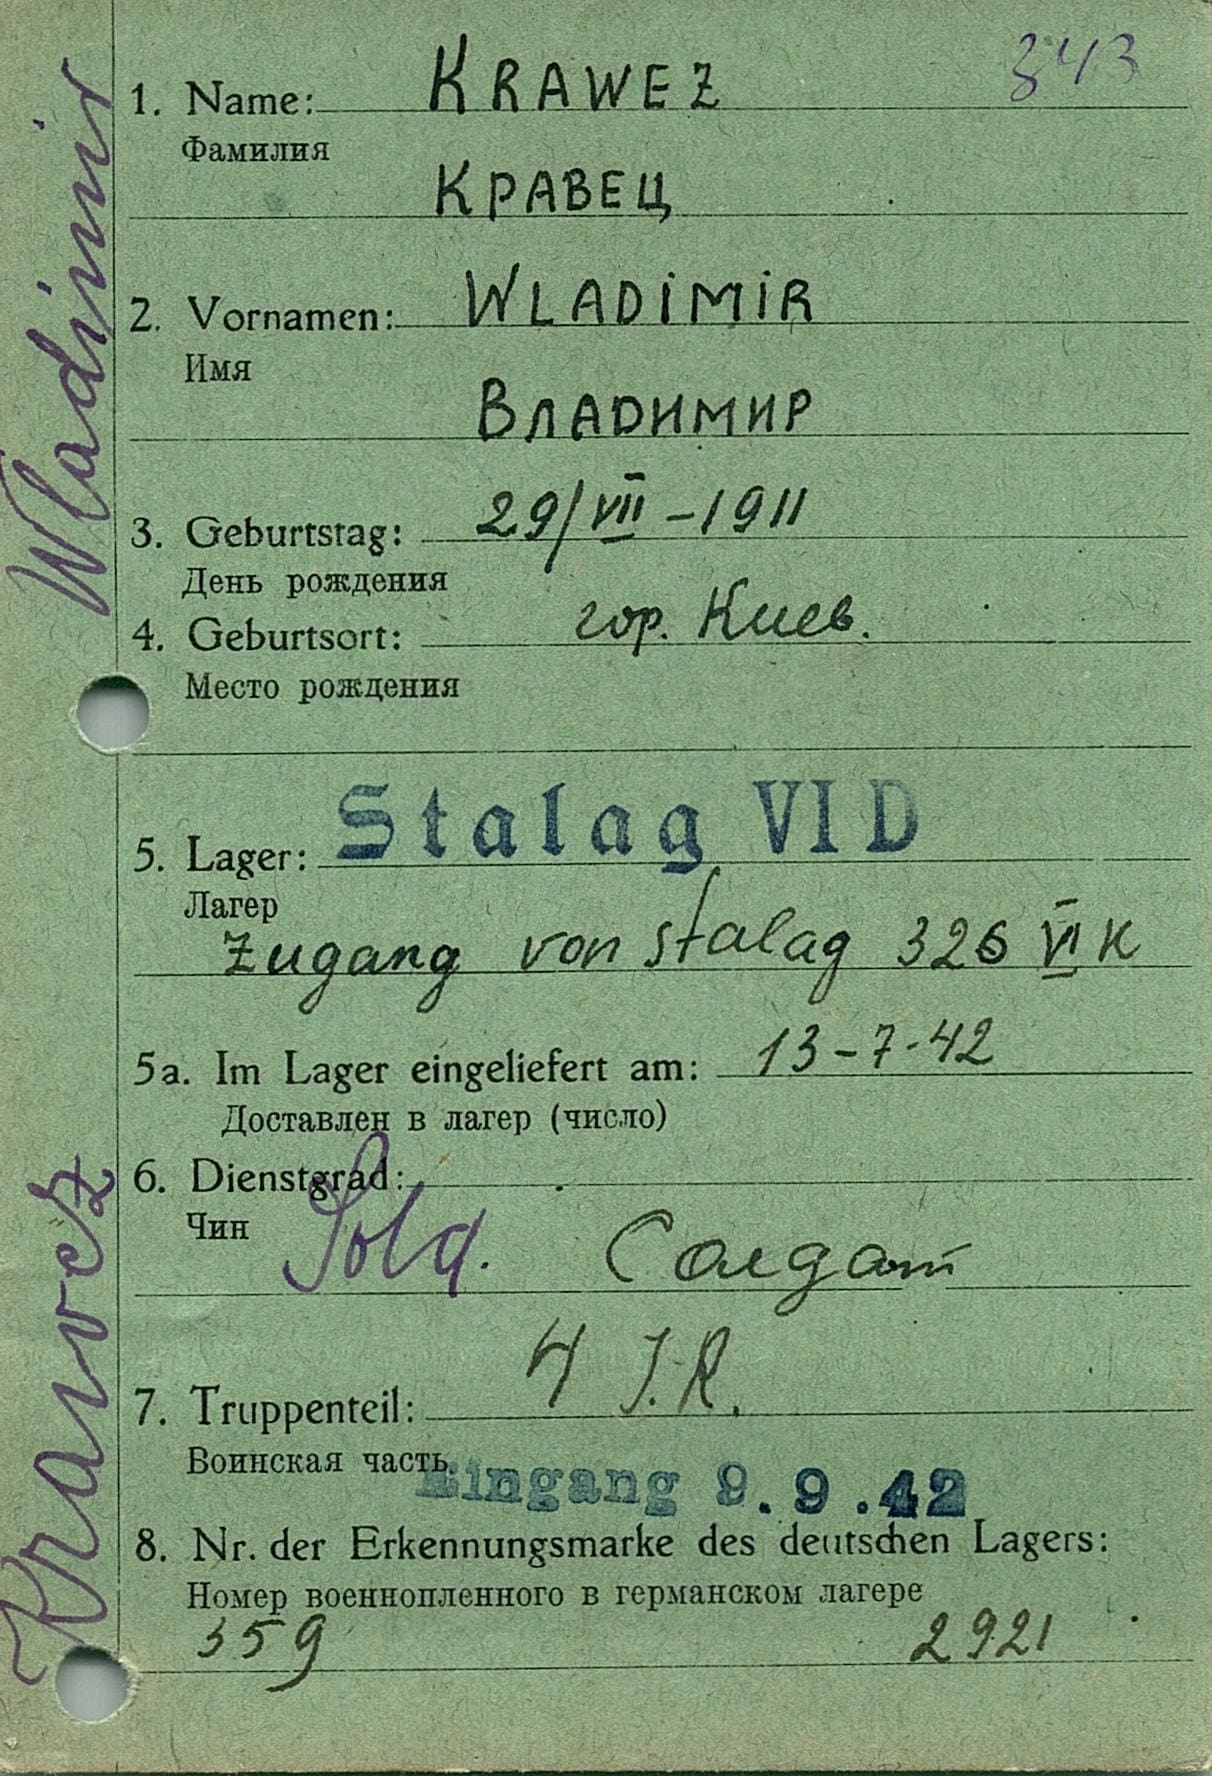 343
1. Name: KRAWEZ
Фамилия
КРАВЕЦ
2. Vornamen: WLADiMiR
Имя
ВЛАДИМИР
3. Geburtstag: 29/VII-1911
День рождения
4. Geburtsort: гор. Киев.
Место рождения
5. Lager: Stalag VI D
Лагер
Zugang von Stalag 326 VI K
5a. Im Lager eingeliefert am: 13-7-42
Доставлен в лагер (число)
6. Dienstgrad:
Чин Sold. Солдат
7. Truppenteil: 4 J.R.
Воинская часть.
Eingang 9.9.42
8. Nr. der Erkennungsmarke des deutschen Lagers:
Номер военнопленного в германском лагере
359 2921
Krawez Wladimir